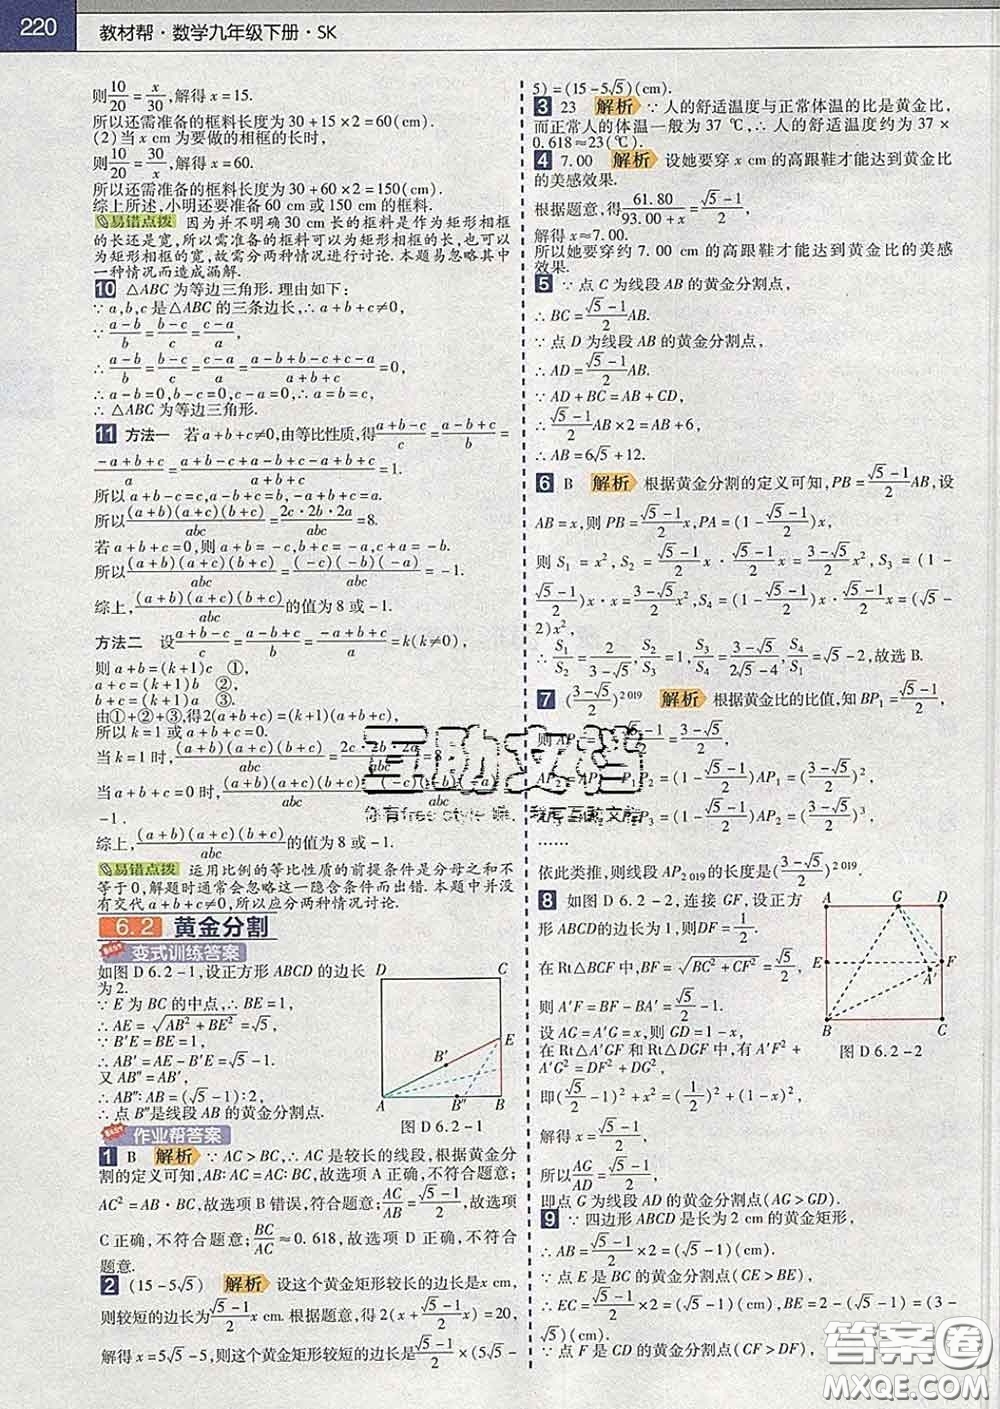 220 教材帮·数学九年级下册·SK
则10/20=x/30,解得 x=15.
所以还需准备的框料长度为 30+15×2=60(cm).
(2)当 x cm 为要做的相框的长时,
则10/20=30/x,解得 x=60.
所以还需准备的框料长度为 30+60×2=150(cm).
综上所述,小明还要准备 60 cm 或 150 cm 的框料.
易错点拨 因为并不明确 30 cm 长的框料是作为矩形相框
的长还是宽,所以需准备的框料可以为矩形相框的长,也可以
为矩形相框的宽,故需分两种情况进行讨论.本题易忽略其中
一种情况而造成漏解.
10 △ABC 为等边三角形.理由如下:
∵ a,b,c 是△ABC 的三条边长,∴ a+b+c≠0.
∵ (a-b)/b=(b-c)/c=(c-a)/a,
∴ (a-b)/b=(b-c)/c=(c-a)/a=(a-b+b-c+c-a)/(a+b+c)=0,
∴ a-b=0,b-c=0,c-a=0,∴ a=b=c,
∴ △ABC 为等边三角形.
11 方法一 若 a+b+c≠0,由等比性质,得(a+b-c)/c=(a-b+c)/b=
(-a+b+c)/a=(a+b-c+a-b+c-a+b+c)/(a+b+c)=1.
所以 a+b-c=c,a-b+c=b,-a+b+c=a.
所以(a+b)(a+c)(b+c)/abc=2c·2b·2a/abc=8.
若 a+b+c=0,则 a+b=-c,b+c=-a,a+c=-b.
所以(a+b)(a+c)(b+c)/abc=(-c)(-b)(-a)/abc=-1.
综上,(a+b)(a+c)(b+c)/abc的值为 8 或-1.
方法二 设(a+b-c)/c=(a-b+c)/b=(-a+b+c)/a=k(k≠0),
则 a+b=(k+1)c ①,
a+c=(k+1)b ②,
b+c=(k+1)a ③.
由①+②+③,得2(a+b+c)=(k+1)(a+b+c),
所以 k=1 或 a+b+c=0.
当 k=1 时,(a+b)(a+c)(b+c)/abc=2c·2b·2a/abc=8
当 a+b+c=0 时,(a+b)(a+c)(b+c)
-1.
综上,(a+b)(a+c)(b+c)/abc的值为 8 或-1.
易错点拨 运用比例的等比性质的前提条件是分母之和不
等于 0,解题时通常会忽略这一隐含条件而出错.本题中并没
有交代 a+b+c≠0,所以应分两种情况讨论.
6.2 黄金分割
变式训练答案
如图 D 6.2-1,设正方形 ABCD 的边长
为 2.
∵ E 为 BC 的中点,∴ BE=1,
∴ AE=√(AB²+BE²)=√5,
∵ B′E=BE=1,
∴ AB′=AE-B′E=√5-1.
又 AB″=AB′,
∴ AB″:AB=(√5-1):2,
∴ 点 B″是线段 AB 的黄金分割点.
D C E B′ A B″ B
图 D 6.2-1
作业帮答案
1 B 解析 ∵ AC>BC,∴ AC 是较长的线段,根据黄金分
割的定义可知,AB:AC=AC:BC,故选项 A 正确,不符合题意;
AC²=AB·BC,故选项 B 错误,符合题意;AC/AB=(√5-1)/2,故选项
C 正确,不符合题意;BC/AC≈0.618,故选项 D 正确,不符合
题意.
2 (15-5√5) 解析 设这个黄金矩形较长的边长是x cm,
则较短的边长为(√5-1)/2x cm.根据题意,得 2(x+(√5-1)/2x)=20,
解得 x=5√5-5,则这个黄金矩形较短的边长是(√5-1)/2×(5√5-
5)=(15-5√5)(cm).
3 23 解析 ∵ 人的舒适温度与正常体温的比是黄金比,
而正常人的体温一般为 37 ℃,∴ 人的舒适温度约为 37×
0.618≈23(℃).
4 7.00 解析 设她要穿 x cm 的高跟鞋才能达到黄金比
的美感效果.
根据题意,得61.80/(93.00+x)=(√5-1)/2,
解得 x≈7.00.
所以她要穿约 7.00 cm 的高跟鞋才能达到黄金比的美感
效果.
5 ∵ 点 C 为线段 AB 的黄金分割点,
∴ BC=(√5-1)/2AB.
∵ 点 D 为线段 AB 的黄金分割点,
∴ AD=(√5-1)/2AB.
∵ AD+BC=AB+CD,
∴ (√5-1)/2AB×2=AB+6,
∴ AB=6√5+12.
6 B 解析 根据黄金分割的定义可知,PB=(√5-1)/2AB,设
AB=x,则 PB=(√5-1)/2x,PA=(1-(√5-1)/2)x,
则 S₁=x²,S₂=(√5-1)/2x·(√5-1)/2x=(3-√5)/2x²,S₃=(1-
(√5-1)/2)x·x=(3-√5)/2x²,S₄=(1-(√5-1)/2)x·(√5-1)/2x=(√5-
2)x²,
∴ S₁/S₂=2/(3-√5),S₂/S₃=1,S₂/S₄=(3-√5)/(2√5-4),S₄/S₁=√5-2,故选 B.
7 ((3-√5)/2)²⁰¹⁹ 解析 根据黄金比的比值,知 BP₁=(√5-1)/2,
则 AP₁=1-(√5-1)/2=(3-√5)/2,
P₁P₂=(1-(√5-1)/2)AP₁=((3-√5)/2)²,
P₂P₃=(1-(√5-1)/2)AP₂=((3-√5)/2)³,
……
依此类推,则线段 AP₂₀₁₉的长度是((3-√5)/2)²⁰¹⁹.
8 如图 D 6.2-2,连接 GF,设正方
形 ABCD的边长为 1,则DF=1/2.
在 Rt△BCF 中,BF=√(BC²+CF²)=√5/2,
则 A′F=BF-BA′=√5/2-1.
设 AG=A′G=x,则 GD=1-x,
在 Rt△A′GF 和 Rt△DGF 中,有 A′F²+
A′G²=DF²+DG²,
即(√5/2-1)²+x²=(1/2)²+(1-x)²,
解得 x=(√5-1)/2,
所以AG/AD=(√5-1)/2,
即点 G 为线段 AD 的黄金分割点(AG>GD).
A G D E F A′ B C
图 D 6.2-2
9 ∵ 四边形 ABCD 是长为 2 cm 的黄金矩形,
∴ AB=(√5-1)/2×2=(√5-1)(cm).
∵ 点 E 是 BC 的黄金分割点(CE>BE),
∴ EC=(√5-1)/2×2=(√5-1)(cm),BE=2-(√5-1)=(3-
√5)(cm).
∵ 点 F 是 CD 的黄金分割点(CF>DF),
互助文档
你有free style嘛,我有互助文档
答案圈
MXQE.COM